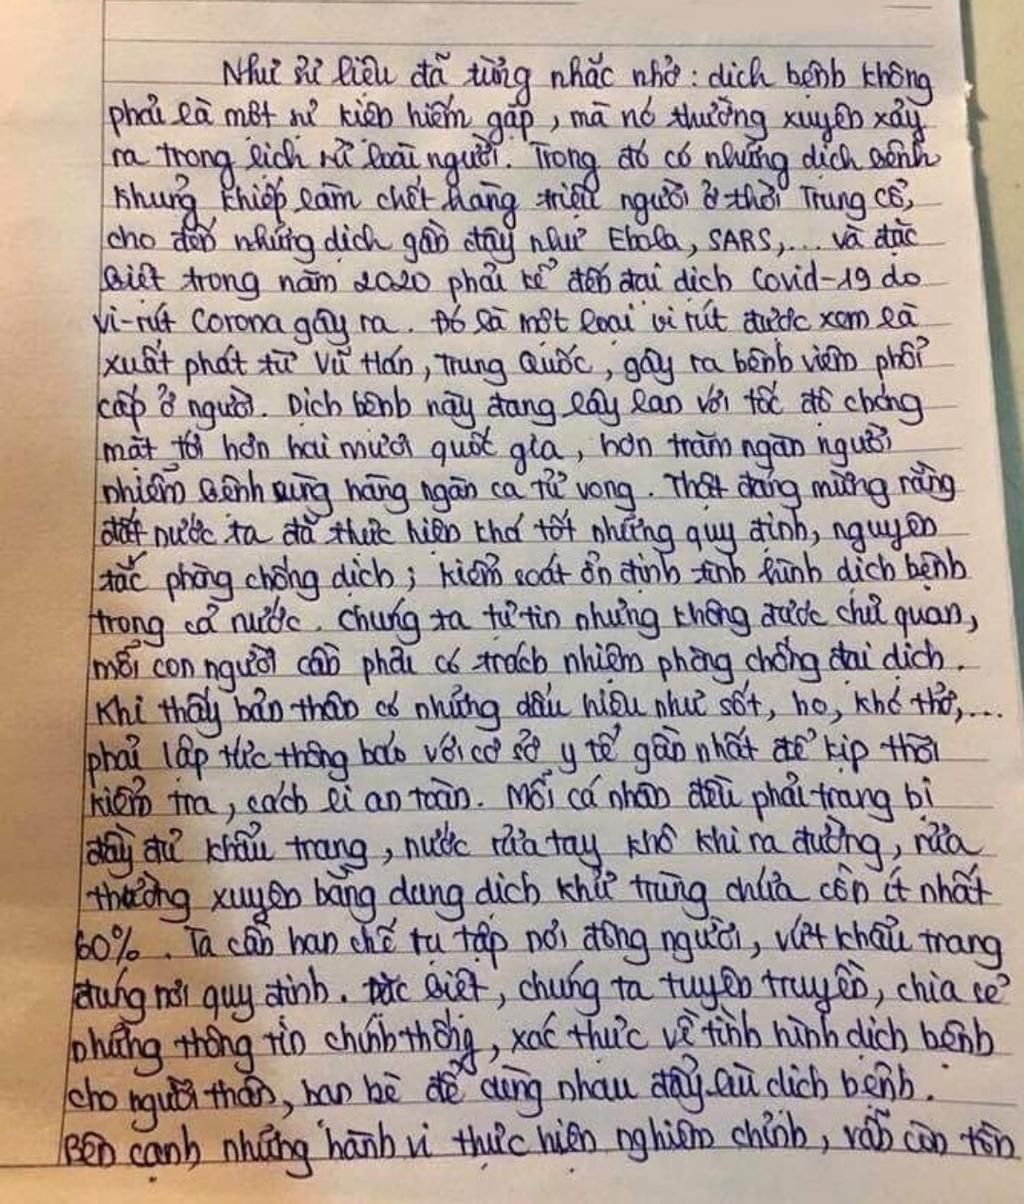 Như sử liệu đã từng nhắc nhở: dịch bệnh không
phải là một sự kiện hiếm gặp, mà nó thường xuyên xảy
ra trong lịch sử loài người. Trong đó có những dịch bệnh
khủng khiếp làm chết hàng triệu người ở thời Trung Cổ,
cho đến những dịch gần đây như Ebola, SARS,... và đặc
biệt trong năm 2020 phải kể đến đại dịch Covid-19 do
vi-rút Corona gây ra. Đó là một loại vi rút được xem là
xuất phát từ Vũ Hán, Trung Quốc, gây ra bệnh viêm phổi
cấp ở người. Dịch bệnh này đang lây lan với tốc độ chóng
mặt tới hơn hai mươi quốc gia, hơn trăm ngàn người
nhiễm bệnh cùng hàng ngàn ca tử vong. Thật đáng mừng rằng
đất nước ta đã thực hiện khá tốt những quy định, nguyên
tắc phòng chống dịch; kiểm soát ổn định tình hình dịch bệnh
trong cả nước. Chúng ta tự tin nhưng không được chủ quan,
mỗi con người cần phải có trách nhiệm phòng chống đại dịch.
Khi thấy bản thân có những dấu hiệu như sốt, ho, khó thở,...
phải lập tức thông báo với cơ sở y tế gần nhất để kịp thời
kiểm tra, cách li an toàn. Mỗi cá nhân đều phải trang bị
đầy đủ khẩu trang, nước rửa tay khô khi ra đường, rửa
thường xuyên bằng dung dịch khử trùng chứa cồn ít nhất
60%. Ta cần hạn chế tụ tập nơi đông người, vứt khẩu trang
đúng nơi quy định. Đặc biệt, chúng ta tuyên truyền, chia sẻ
những thông tin chính thống, xác thực về tình hình dịch bệnh
cho người thân, bạn bè để cùng nhau đẩy lùi dịch bệnh.
Bên cạnh những hành vi thực hiện nghiêm chỉnh, vẫn còn tồn